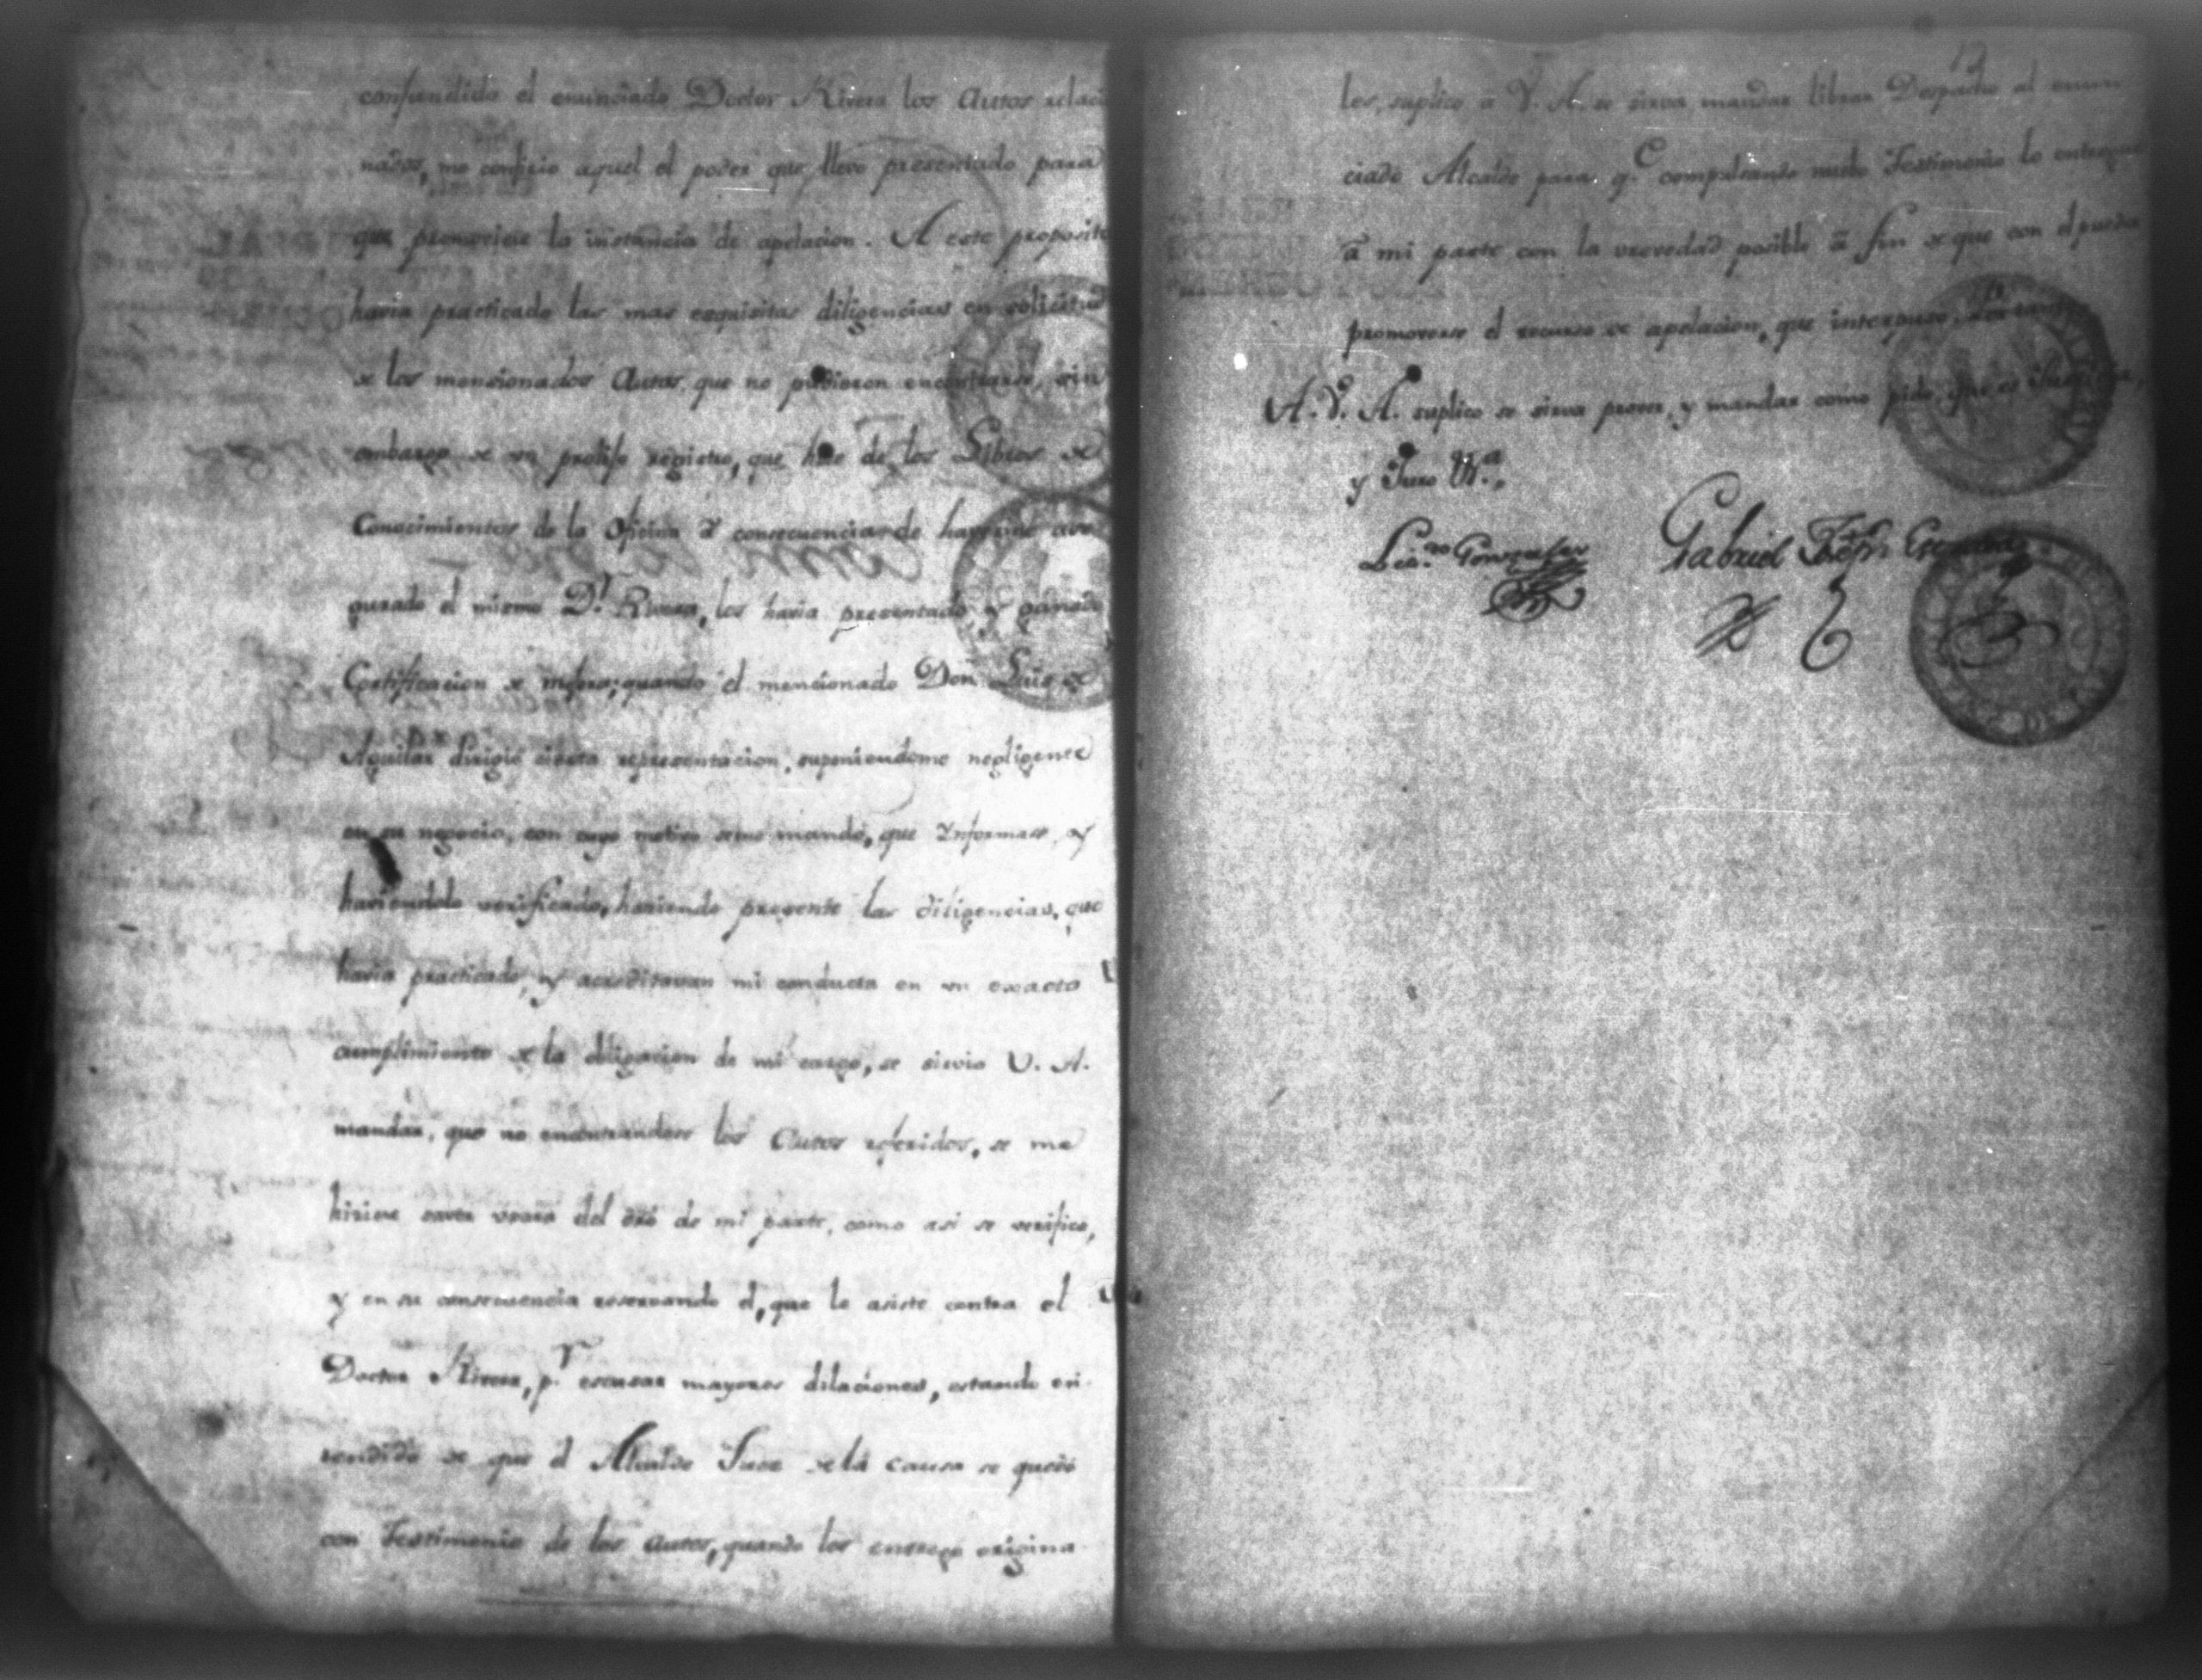 confundido el enunciado Doctor Rivera los Autos relacio
nados, me confirio aquel el poder que llevo presentado para
que promoviese la instancia de apelacion. A este proposito
havia practicado las mas exquisitas diligencias en solicitud
de los mencionados Autos, que no pudieron encontrarse, sin
embargo de un prolijo registro, que hize de los Libros de
Conocimientos de la oficina á consecuencias de haverme ase
gurado el mismo Dr. Rivera, los havia presentado, y ganado
Certificacion de mejora; quando el mencionado Don Luis de
Aguilar dirigió cierta representacion, suponiendome negligente
en su negocio, con cuyo motivo seme mandó, que Informase, y
haviendolo verificado, haciendo presente las diligencias, que
havia practicado, y acreditavan mi conducta en un exacto
cumplimiento de la obligacion de mi cargo, se sirvio V. A.
mandar, que no encontrandose los Autos referidos, se me
hiziese saver usara del dro de mi parte, como asi se verifico,
y en su consecuencia reservando el, que le asiste contra el
Doctor Rivera, pr. escusar mayores dilaciones, estando en
tendido de que el Alcalde Juez dela causa se quedó
con Testimonio de los autos, quando los entregó origina
12
les, suplico a V. A. se sirva mandar librar Despacho al enun
ciado Alcalde para qe. compulsando nuebo Testimonio lo entregue
â mi parte con la vrevedad posible â fin de que con el pueda
promoverse el recurso de apelacion, que interpuso. Por tanto
A. V. A. suplico se sirva prover, y mandar como pido, que es Justicia,
y Juro Vta.
Licdo. Gonzales
Gabriel